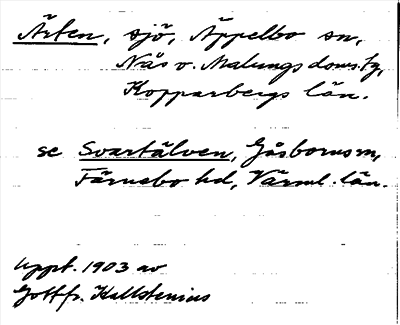 Ärten, sjö, Äppelbo sn,
Näs o. Malungs doms. tg,
Kopparbergs län.
se Svartälven, Gåsborns sn,
Färnebo hd, Värml. län.
Uppt. 1903 av
Gottfr. Kallstenius